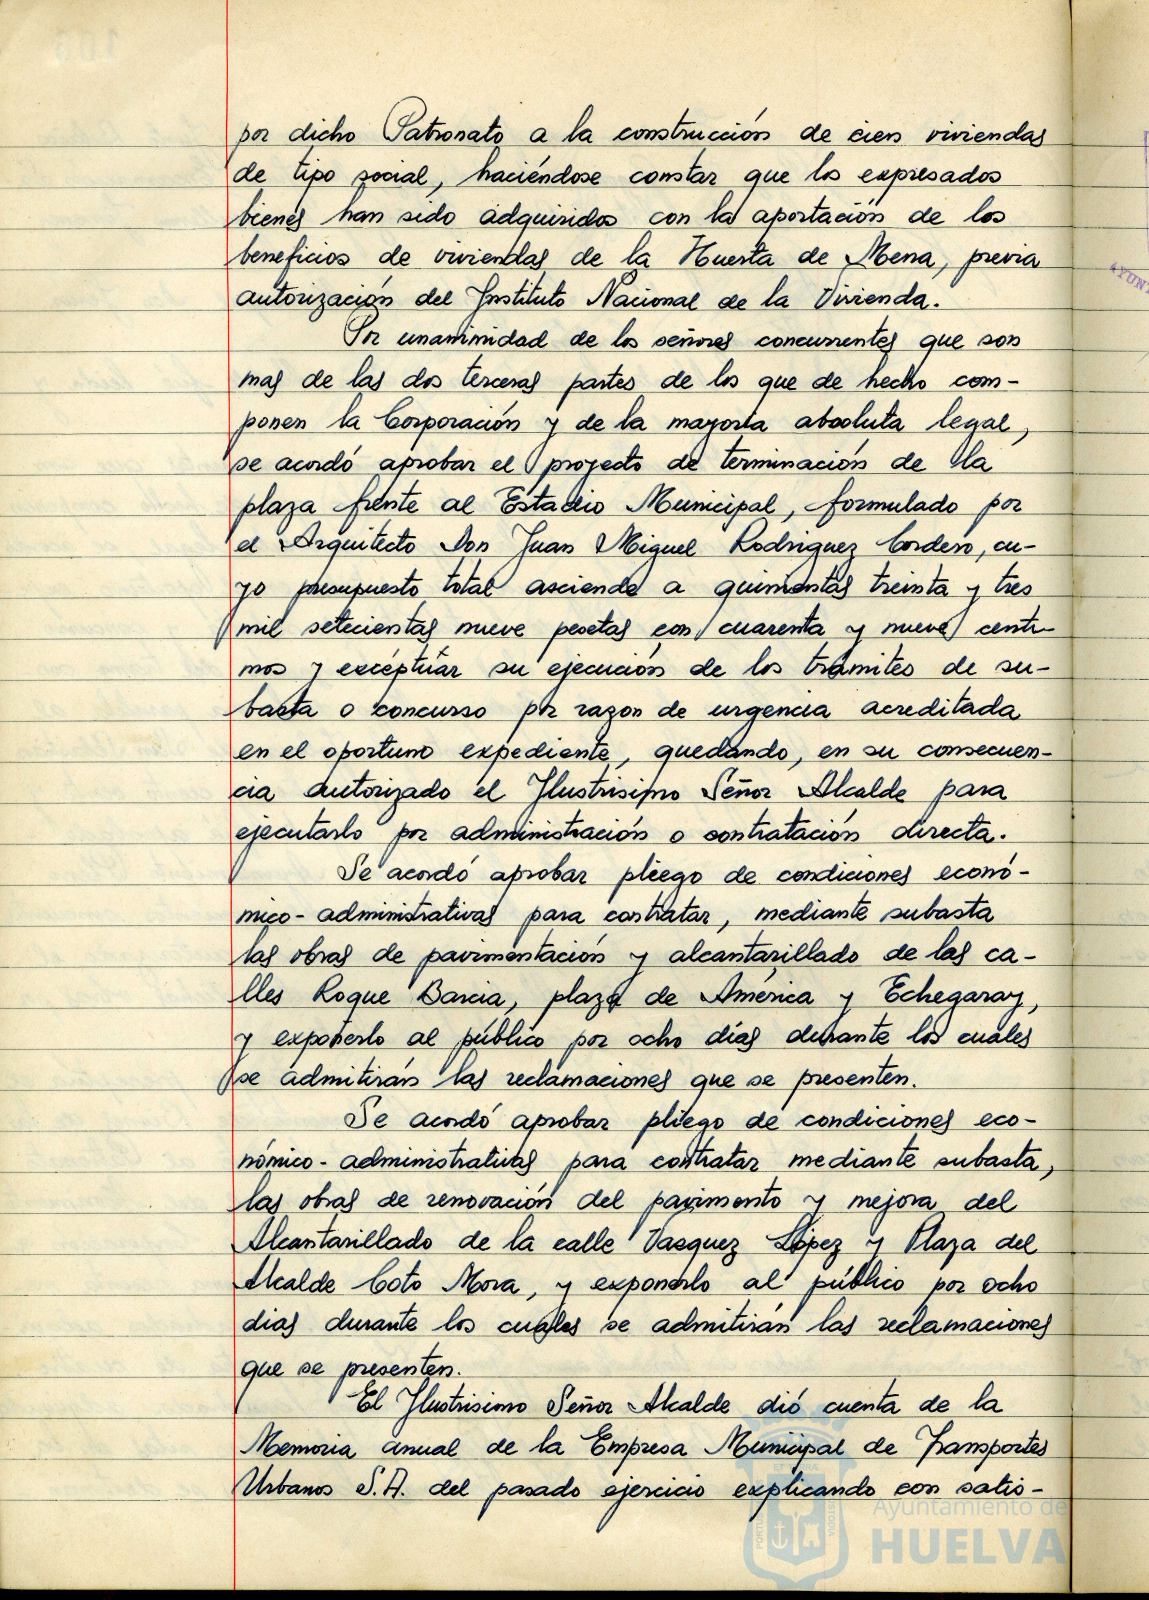 por dicho Patronato a la construcción de cien viviendas
de tipo social, haciéndose constar que los expresados
bienes han sido adquiridos con la aportación de los
beneficios de viviendas de la Huerta de Mena, previa
autorización del Instituto Nacional de la Vivienda.
Por unanimidad de los señores concurrentes que son
mas de las dos terceras partes de los que de hecho com-
ponen la Corporación y de la mayoria absoluta legal,
se acordó aprobar el proyecto de terminación de la
plaza frente al Estadio Municipal, formulado por
el Arquitecto Don Juan Miguel Rodriguez Cordero, cu-
yo presupuesto total asciende a quinientas treinta y tres
mil setecientas nueve pesetas con cuarenta y nueve centi-
mos y exceptuar su ejecución de los tramites de su-
basta o concurso por razon de urgencia acreditada
en el oportuno expediente, quedando, en su consecuen-
cia autorizado el Ilustrisimo Señor Alcalde para
ejecutarlo por administración o contratación directa.
Se acordó aprobar pliego de condiciones econó-
mico-administrativas para contratar, mediante subasta
las obras de pavimentación y alcantarillado de las ca-
lles Roque Barcia, plaza de America y Echegaray,
y exponerlo al público por ocho días durante los cuales
se admitirán las reclamaciones que se presenten.
Se acordó aprobar pliego de condiciones eco-
nómico-administrativas para contratar mediante subasta,
las obras de renovación del pavimento y mejora del
Alcantarillado de la calle Vasquez López y Plaza del
Alcalde Coto Mora, y exponerlo al público por ocho
dias durante los cuales se admitirán las reclamaciones
que se presenten.
El Ilustrisimo Señor Alcalde dió cuenta de la
Memoria anual de la Empresa Municipal de Transportes
Urbanos S.A. del pasado ejercicio explicando con satis-
Ayuntamiento de
HUELVA